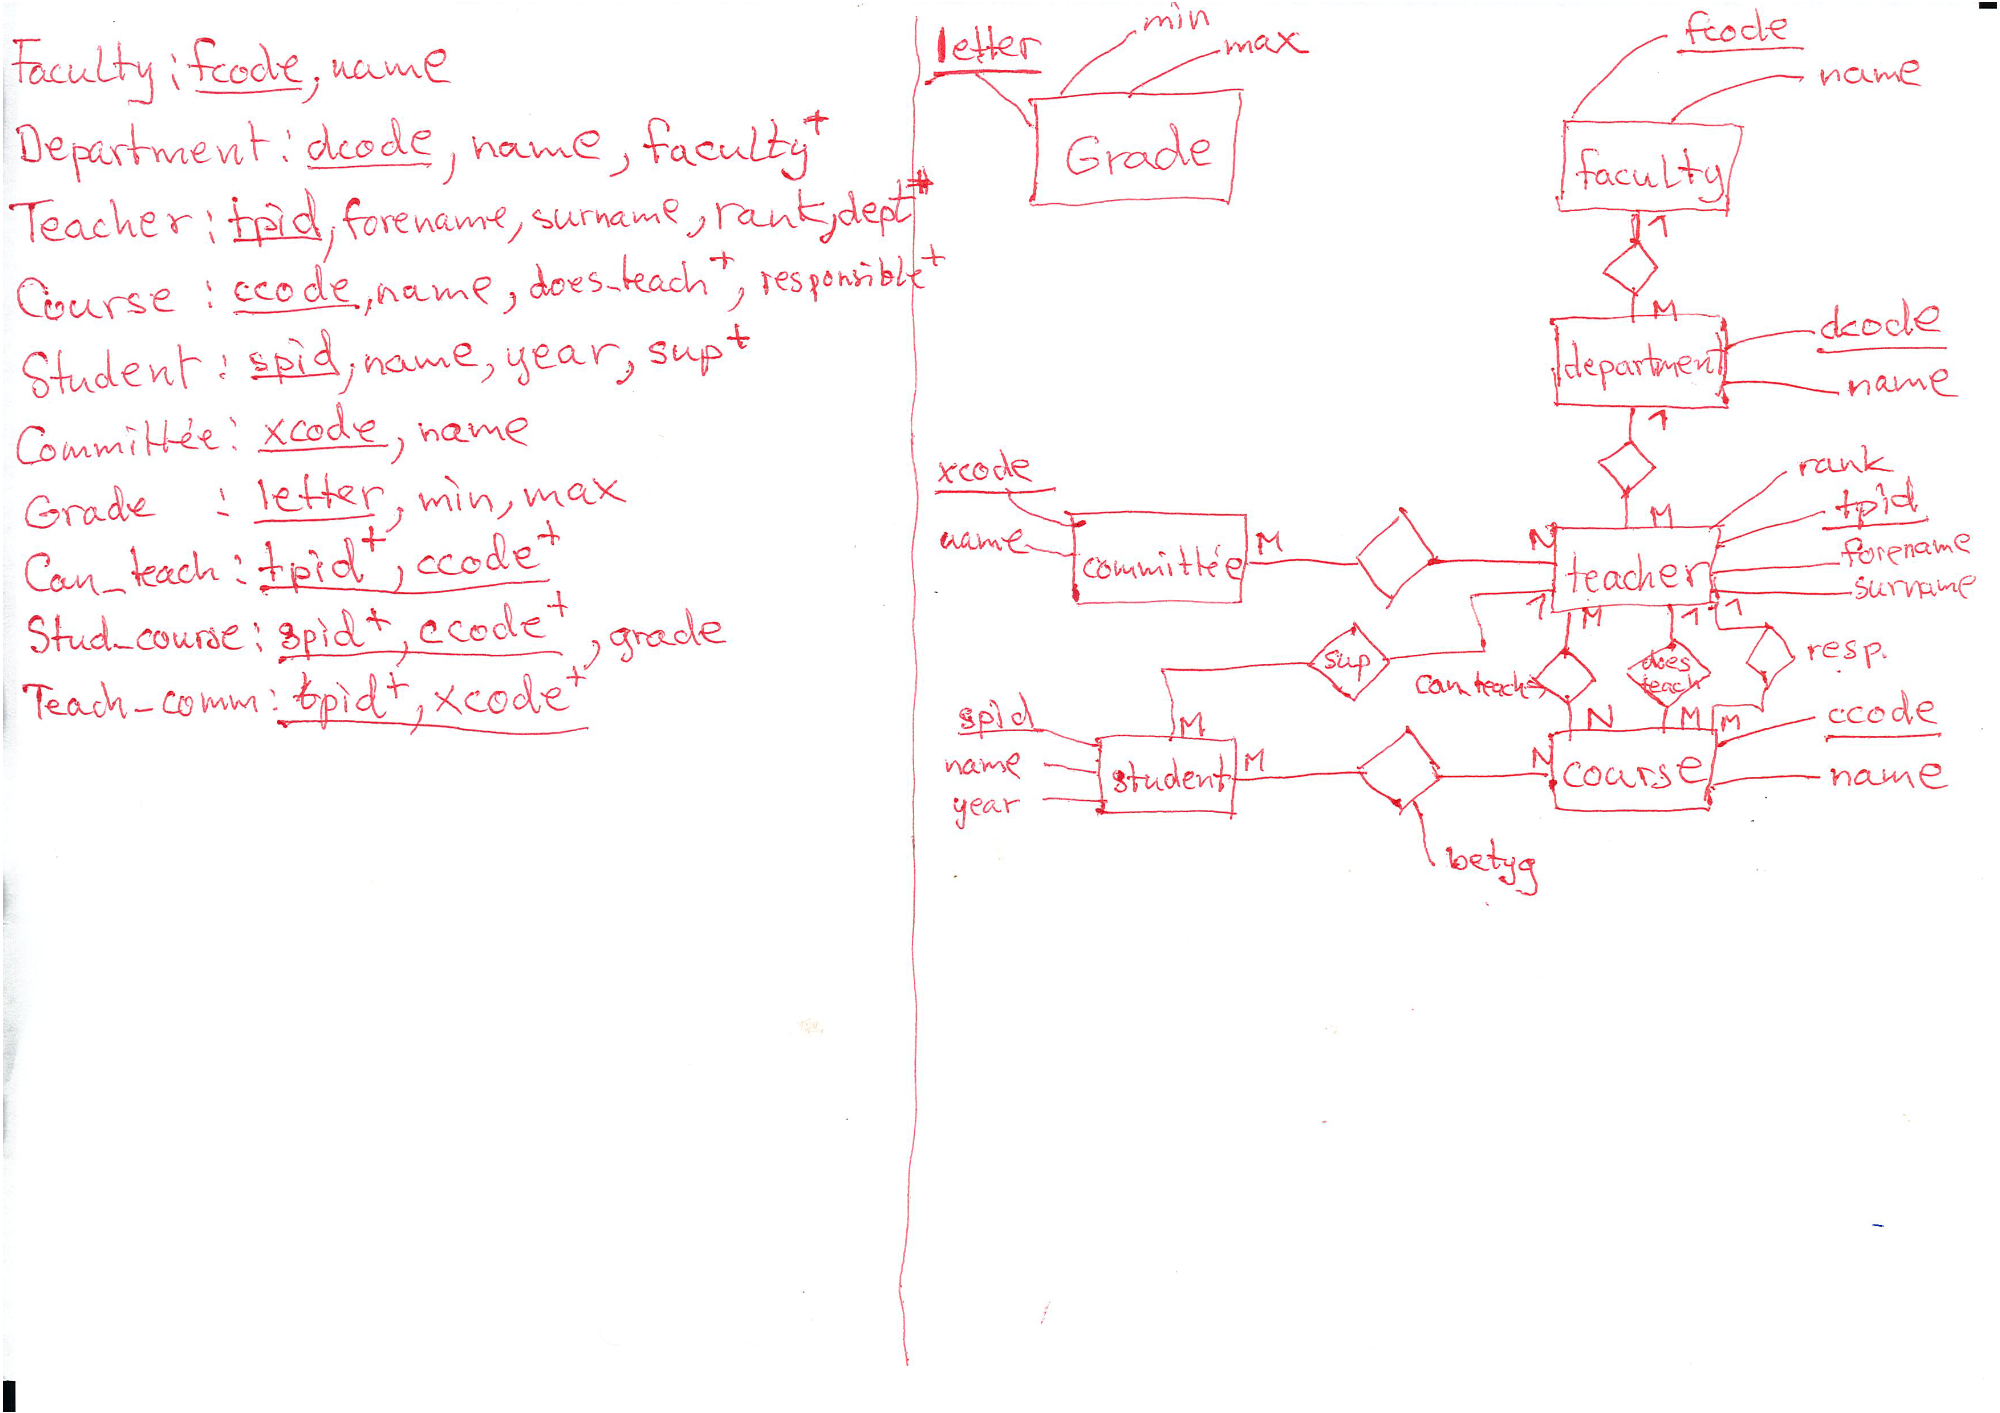 Faculty : fcode, name
Department : dcode, name, faculty+
Teacher : tpid, forename, surname, rank, dept+
Course : ccode, name, does_teach+, responsible+
Student : spid, name, year, sup+
Committée : xcode, name
Grade : letter, min, max
Can_teach : tpid+, ccode+
Stud_course : spid+, ccode+, grade
Teach_comm : tpid+, xcode+
letter
min
max
Grade
fcode
name
faculty
1
M
department
dcode
name
1
M
xcode
name
committée
M
N
teacher
rank
tpid
forename
surname
1
sup
M
M
can_teach
N
1
does teach
M
1
resp.
M
spid
name
year
student
M
N
course
ccode
name
betyg